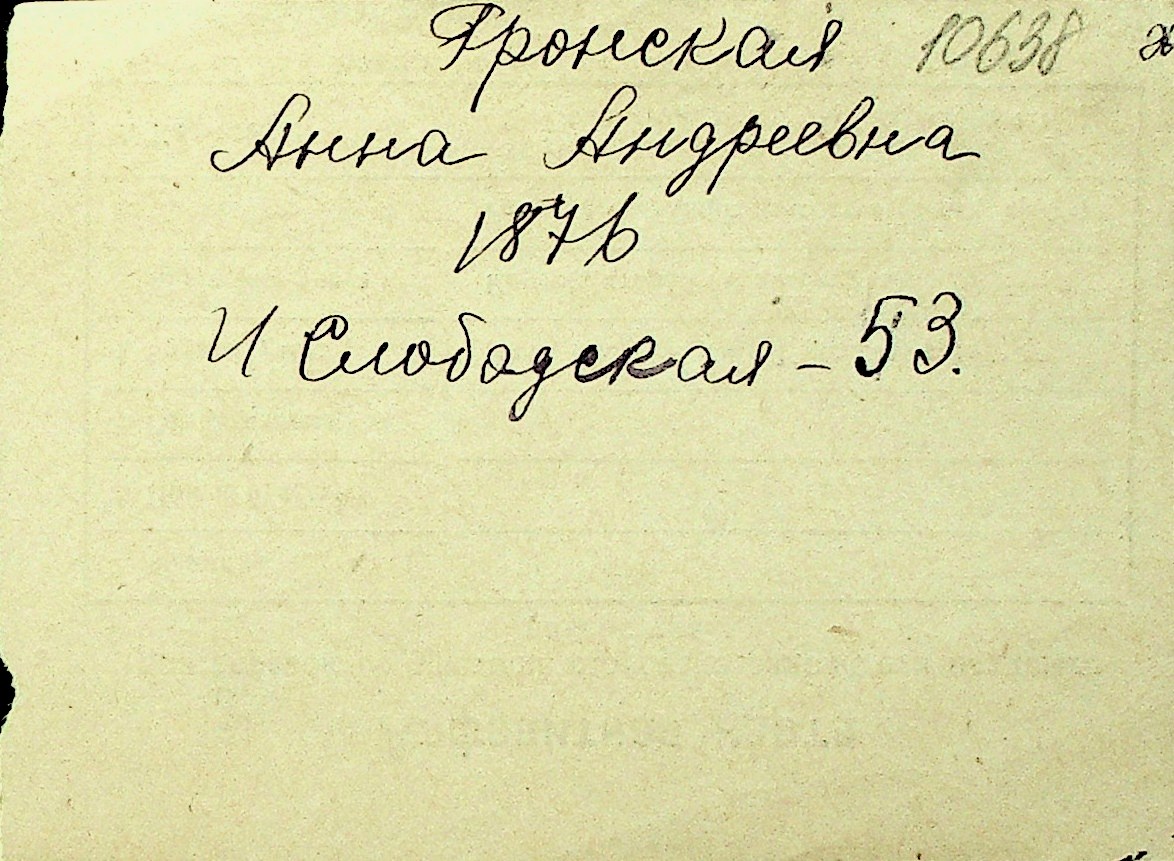 Гронская 10638 ж
Анна Андреевна
1876
И Слободская - 53.